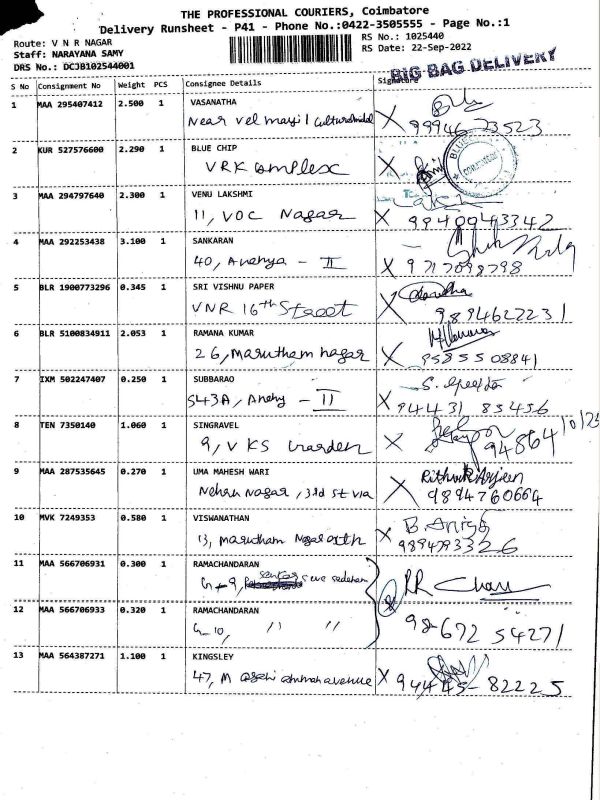 THE PROFESSIONAL COURIERS, Coimbatore
Delivery Runsheet - P41 - Phone No.:0422-3505555 - Page No.:1
Route: V N R NAGAR
RS No.: 1025440
Staff: NARAYANA SAMY
RS Date: 22-Sep-2022
DRS No.: DCJB102544001
BIG BAG DELIVERY
S No Consignment No Weight PCS Consignee Details Signature
1 MAA 295407412 2.500 1 VASANATHA
Near Vel mayil X 99946 73523
2 KUR 527576600 2.290 1 BLUE CHIP
VRK complex X
BLUE
COIMBATORE
3 MAA 294797640 2.300 1 VENU LAKSHMI
11, VOC Nagar X 9940043342
4 MAA 292253438 3.100 1 SANKARAN
40, Ananya - II X 9717098798
5 BLR 1900773296 0.345 1 SRI VISHNU PAPER
VNR 16th Street X 9894627231
6 BLR 5100834911 2.053 1 RAMANA KUMAR
26, Marutham nagar X 95855 08841
7 IXM 502247407 0.250 1 SUBBARAO
S43A, Anany - II X 94431 83456
8 TEN 7350140 1.060 1 SINGRAVEL
9, VKS Garden X 94864
9 MAA 287535645 0.270 1 UMA MAHESH WARI
Nehru Nagar, 3rd st via X 9894760664
10 MVK 7249353 0.580 1 VISWANATHAN
13, Marutham Nagar X 9894793326
11 MAA 566706931 0.300 1 RAMACHANDARAN
G-9, RR
12 MAA 566706933 0.320 1 RAMACHANDARAN
G-10, " " 98672 54271
13 MAA 564387271 1.100 1 KINGSLEY
47, M avenue X 94445-82225